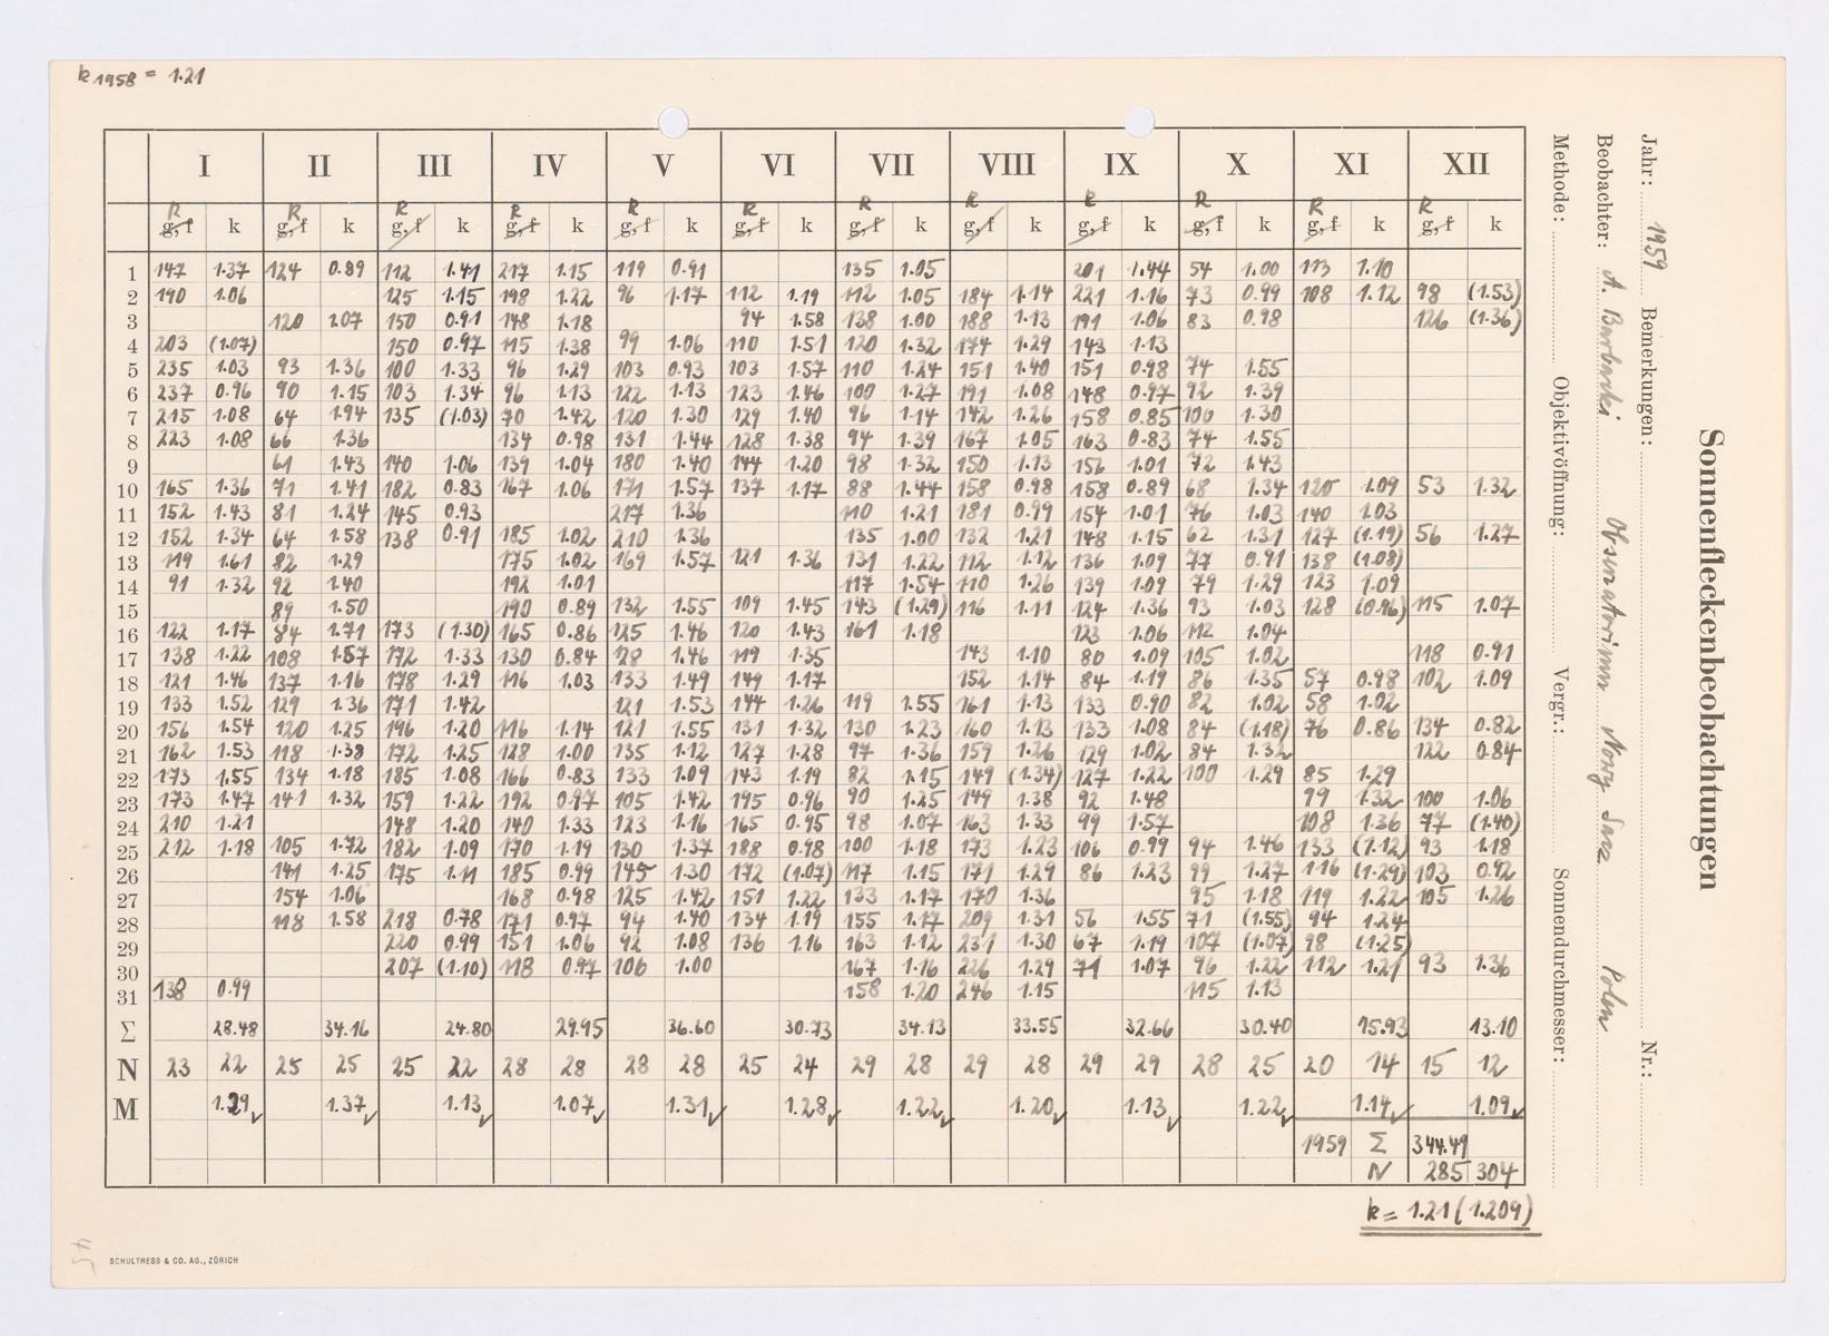 k 1958 = 1.21
Sonnenfleckenbeobachtungen
Jahr: 1959 Bemerkungen: Nr.:
Beobachter: A. Barbacki Observatorium Nowy Sacz Polen
Methode: Objektivöffnung: Vergr.: Sonnendurchmesser:
I II III IV V VI VII VIII IX X XI XII
R R R R R R R R R R R R
g, f k g, f k g, f k g, f k g, f k g, f k g, f k g, f k g, f k g, f k g, f k g, f k
1 147 1.37 124 0.89 112 1.41 217 1.15 119 0.91 135 1.05 201 1.44 54 1.00 113 1.10
2 190 1.06 125 1.15 198 1.22 96 1.17 112 1.19 112 1.05 184 1.14 221 1.16 73 0.99 108 1.12 98 (1.53)
3 120 1.07 150 0.91 148 1.18 94 1.58 138 1.00 188 1.13 191 1.06 83 0.98 126 (1.36)
4 203 (1.07) 150 0.97 115 1.38 99 1.06 110 1.51 120 1.32 174 1.29 143 1.13
5 235 1.03 93 1.36 100 1.33 96 1.29 103 0.93 103 1.57 110 1.24 151 1.40 151 0.98 74 1.55
6 237 0.96 90 1.15 103 1.34 96 1.13 122 1.13 123 1.46 100 1.27 191 1.08 148 0.97 92 1.39
7 215 1.08 64 1.94 135 (1.03) 70 1.42 120 1.30 129 1.40 96 1.14 142 1.26 158 0.85 100 1.30
8 223 1.08 66 1.36 134 0.98 131 1.44 128 1.38 94 1.39 167 1.05 163 0.83 74 1.55
9 61 1.43 140 1.06 139 1.04 180 1.40 144 1.20 98 1.32 150 1.13 156 1.01 72 1.43
10 165 1.36 71 1.41 182 0.83 167 1.06 171 1.57 137 1.17 88 1.44 158 0.98 158 0.89 68 1.34 120 1.09 53 1.32
11 152 1.43 81 1.24 145 0.93 217 1.36 110 1.21 181 0.99 154 1.01 76 1.03 140 1.03
12 152 1.34 64 1.58 138 0.91 185 1.02 210 1.36 135 1.00 132 1.21 148 1.15 62 1.31 127 (1.19) 56 1.27
13 119 1.61 82 1.29 175 1.02 169 1.57 121 1.36 131 1.22 112 1.12 136 1.09 77 0.91 138 (1.08)
14 91 1.32 92 1.40 192 1.01 117 1.54 110 1.26 139 1.09 79 1.29 123 1.09
15 89 1.50 190 0.89 132 1.55 109 1.45 143 (1.29) 116 1.11 124 1.36 93 1.03 128 (0.96) 115 1.07
16 122 1.17 84 1.71 173 (1.30) 165 0.86 125 1.46 120 1.43 161 1.18 123 1.06 112 1.04
17 138 1.22 108 1.57 172 1.33 130 0.84 128 1.46 119 1.35 143 1.10 80 1.09 105 1.02 118 0.91
18 121 1.46 137 1.16 178 1.29 116 1.03 133 1.49 149 1.17 152 1.14 84 1.19 86 1.35 57 0.98 102 1.09
19 133 1.52 129 1.36 171 1.42 121 1.53 144 1.26 119 1.55 161 1.13 133 0.90 82 1.02 58 1.02
20 156 1.54 120 1.25 196 1.20 116 1.14 121 1.55 131 1.32 130 1.23 160 1.13 133 1.08 84 (1.18) 76 0.86 134 0.82
21 162 1.53 118 1.38 172 1.25 128 1.00 135 1.12 127 1.28 97 1.36 159 1.26 129 1.02 84 1.32 122 0.84
22 173 1.55 134 1.18 185 1.08 166 0.83 133 1.09 143 1.19 82 1.15 149 (1.34) 127 1.22 100 1.29 85 1.29
23 173 1.47 141 1.32 159 1.22 192 0.97 105 1.42 195 0.96 90 1.25 149 1.38 92 1.48 99 1.32 100 1.06
24 210 1.21 148 1.20 140 1.33 123 1.16 165 0.95 98 1.07 163 1.33 99 1.57 108 1.36 77 (1.40)
25 212 1.18 105 1.72 182 1.09 170 1.19 130 1.37 188 0.98 100 1.18 173 1.23 106 0.99 94 1.46 133 (1.12) 93 1.18
26 141 1.25 175 1.11 185 0.99 145 1.30 172 (1.07) 117 1.15 171 1.29 86 1.23 99 1.27 116 (1.29) 103 0.92
27 154 1.06 168 0.98 125 1.42 151 1.22 133 1.17 170 1.36 95 1.18 119 1.22 105 1.26
28 118 1.58 218 0.78 171 0.97 94 1.40 134 1.19 155 1.17 209 1.31 56 1.55 71 (1.55) 94 1.24
29 220 0.99 151 1.06 92 1.08 136 1.16 163 1.12 231 1.30 67 1.19 107 (1.07) 98 (1.25)
30 207 (1.10) 118 0.97 106 1.00 167 1.16 226 1.29 71 1.07 96 1.22 112 1.21 93 1.36
31 138 0.99 158 1.20 246 1.15 115 1.13
Σ 28.48 34.16 24.80 29.95 36.60 30.73 34.13 33.55 32.66 30.40 15.93 13.10
N 23 22 25 25 25 22 28 28 28 28 25 24 29 28 29 28 29 29 28 25 20 14 15 12
M 1.29 1.37 1.13 1.07 1.31 1.28 1.22 1.20 1.13 1.22 1.14 1.09
1959 Σ 344.49
N 285 304
k = 1.21 (1.209)
SCHULTHESS & CO. AG., ZÜRICH